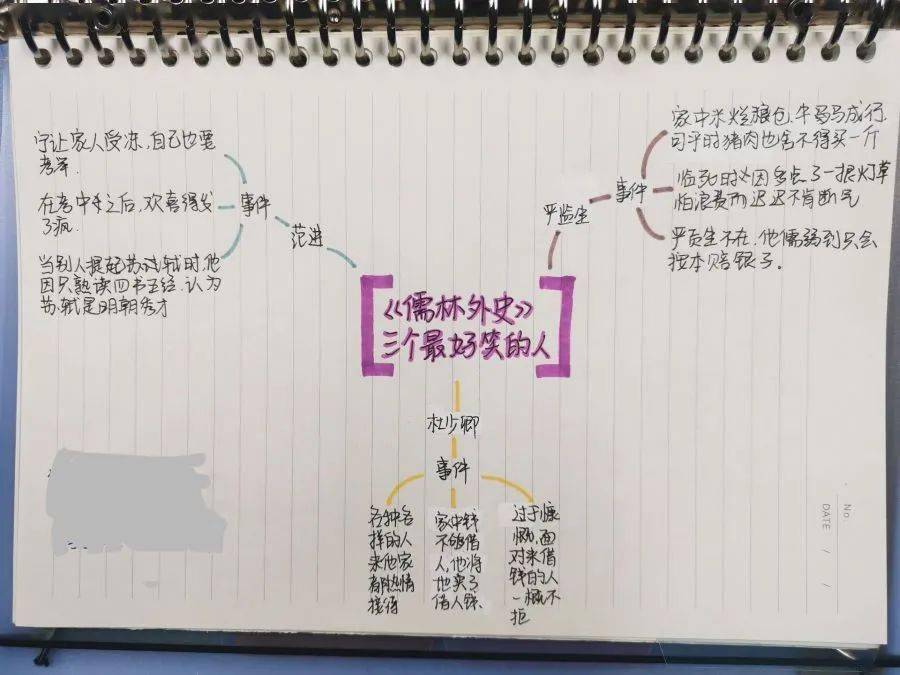 宁让家人受冻,自己也要
考举.
在考中举之后,欢喜得发
了疯.
当别人提起苏轼时,他
因只熟读四书五经,认为
苏轼是明朝秀才
事件
范进
家中米烂粮仓,牛马成行,
可平时猪肉也舍不得买一斤
临死时必因多点了一根灯草
怕浪费而迟迟不肯断气
严贡生不在,他懦弱到只会
按本赔银子。
事件
严监生
《儒林外史》
三个最好笑的人
杜少卿
事件
各种各
样的人
来他家
都热情
接待
家中钱
不够借
人,他将
地卖了
借人钱.
过于慷
慨,面
对来借
钱的人
一概不
拒
No
DATE / /